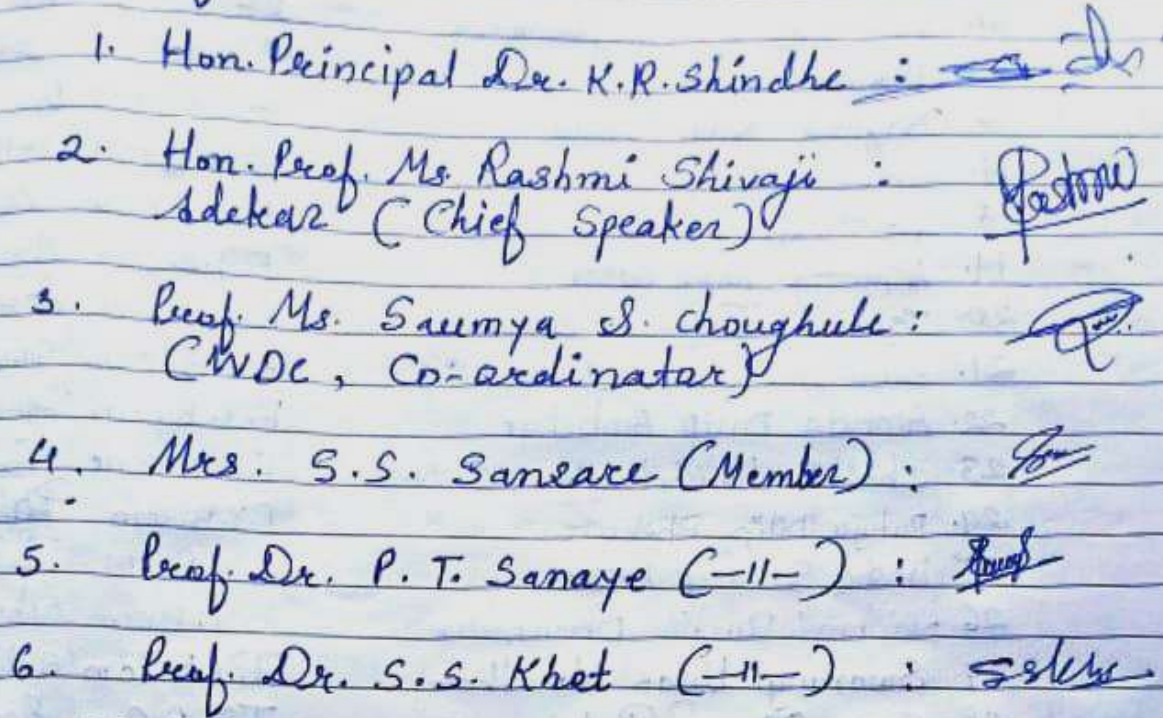 1. Hon. Principal Dr. K.R. Shindhe :
2. Hon. Prof. Ms. Rashmi Shivaji :
Adekar (Chief Speaker)
3. Prof. Ms. Saumya S. Choughule :
(WDC, Co-ordinator)
4. Mrs. S.S. Sansare (Member) :
5. Prof. Dr. P. T. Sanaye (-11-) :
6. Prof. Dr. S.S. Khot (-11-) :